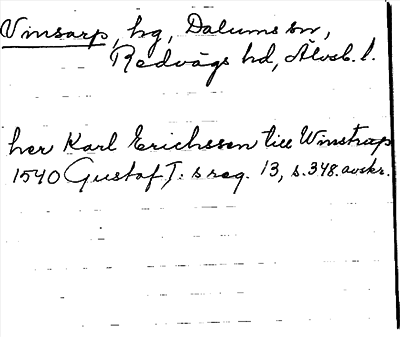 Vinsarp, hg, Dalums sn,
Redvägs hd, Älvsb. l.
her Karl Erichssen till Winstrap
1540 Gustaf I: s reg. 13, s. 348. avskr.